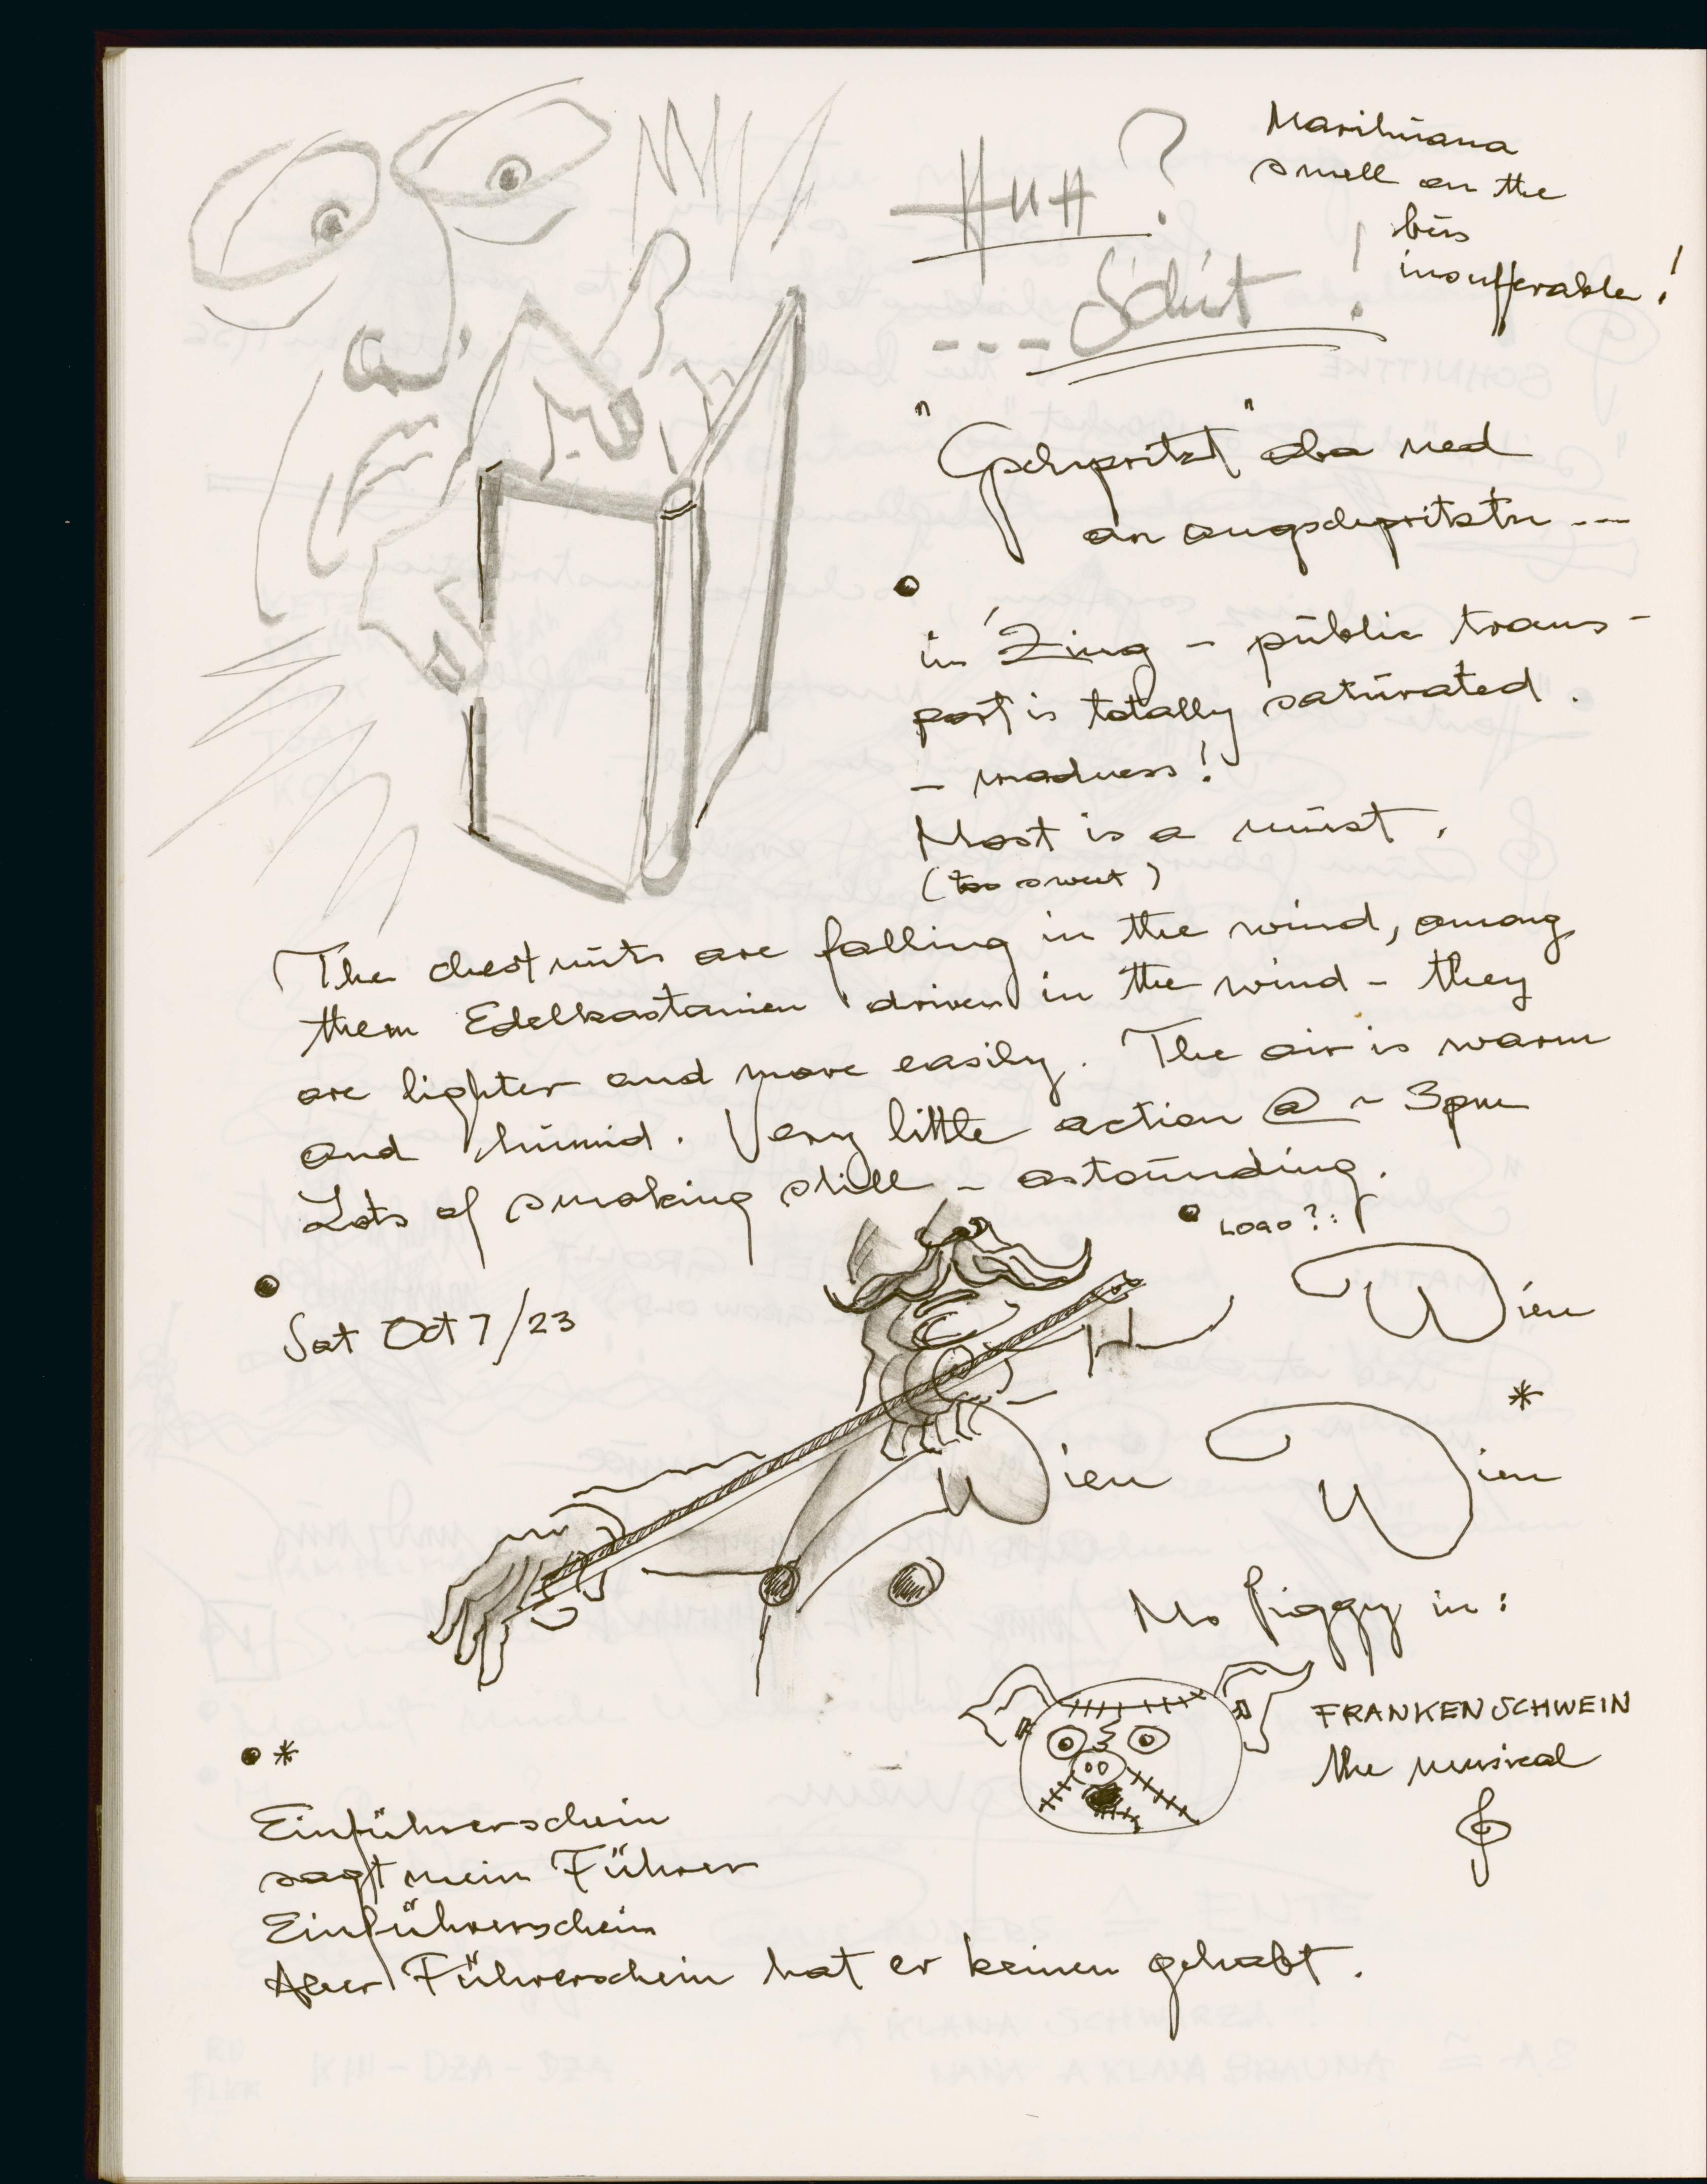 HUH?
--- Schit!
Marihuana
smell on the
bus
insufferable!
"Gschpritzt" oba ned
an augschpritztn ---
in Zing - public trans-
port is totally saturated.
- madness!
Most is a must.
(too sweet)
The chestnuts are falling in the wind, among
them Edelkastanien driven in the wind - they
are lighter and more easily. The air is warm
and humid. Very little action @ ~ 3pm
Lots of smoking still - astounding.
• LOGO?:
Wien
•
Sat Oct 7/23
*
Wien Wien
Ms Piggy in:
FRANKENSCHWEIN
the musical
• *
Einführerschein
sagt mein Führer
Einführerschein
Aber Führerschein hat er keinen gehabt.